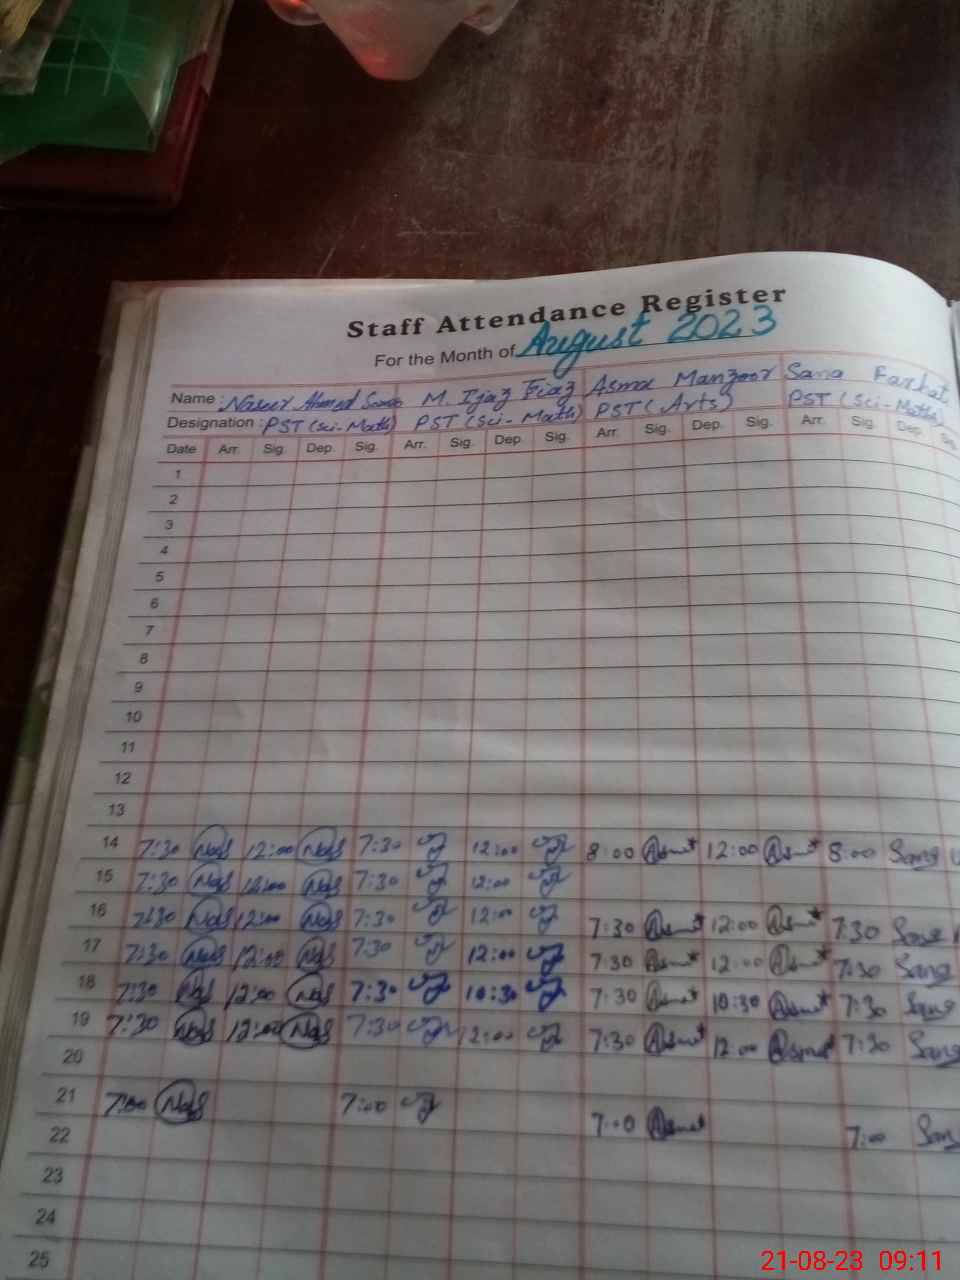 Staff Attendance Register
For the Month of August 2023
Name: Naseer Ahmed M. Ijaz Fiaz Asma Manzoor Sana Farhat
Designation: PST (Sci-Math) PST (Sci-Math) PST (Arts) PST (Sci-Math)
Date Arr. Sig. Dep. Sig. Arr. Sig. Dep. Sig. Arr. Sig. Dep. Sig. Arr. Sig. Dep.
1
2
3
4
5
6
7
8
9
10
11
12
13
14 7:30 12:00 7:30 12:00 8:00 Asma 12:00 Asma 8:00 Sana
15 7:30 12:00 7:30 12:00
16 7:30 12:00 7:30 12:00 7:30 Asma 12:00 Asma 7:30 Sana
17 7:30 12:00 7:30 12:00 7:30 Asma 12:00 Asma 7:30 Sana
18 7:30 12:00 7:30 10:30 7:30 Asma 10:30 Asma 7:30 Sana
19 7:30 12:00 7:30 12:00 7:30 Asma 12:00 Asma 7:30 Sana
20
21 7:00 7:00 7:00 Asma 7:00 Sana
22
23
24
25
21-08-23 09:11